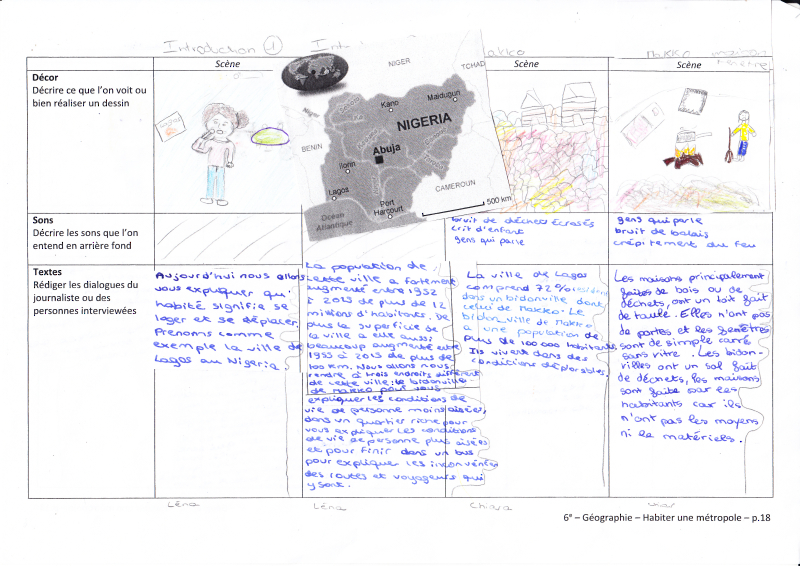 Introduction 1
Scène
Scène
Scène
Décor
Décrire ce que l'on voit ou
bien réaliser un dessin
NIGER
TCHAD
Kano
Maidugun
NIGERIA
BENIN
Abuja
Ilorin
Lagos
Port
Harcourt
CAMEROUN
Océan
Atlantique
500 km
Sons
Décrire les sons que l'on
entend en arrière fond
bruit de déchets écrasés
crit d'enfant
gens qui parle
gens qui parle
bruit de balais
crépitement du feu
Textes
Rédiger les dialogues du
journaliste ou des
personnes interviewées
Aujourd'hui nous allons
vous expliquer qu'
habité signifie se
loger et se déplacer.
Prenons comme
exemple la ville de
Lagos au Nigeria.
La population de
cette ville a fortement
augmenté entre 1952
à 2015 de plus de 12
millions d'habitants. De
plus la superficie de
la ville a elle aussi
beaucoup augmenté entre
1955 à 2015 de plus de
100 km. Nous allons nous
rendre à trois endroits différent
de cette ville: le bidonville
de Makko pour vous
expliquer les conditions de
vie de personne moins aisées,
dans un quartier riche pour
vous expliquer les conditions
de vie de personne plus aisées
et pour finir dans un bus
pour expliquer les inconvénients
des routes et voyageurs qui
y sont.
La ville de Lagos
comprend 72% résident
dans un bidonville dont
celui de Makko. Le
bidonville de Makko
a une population de
plus de 100 000 habitants
Ils vivent dans des
conditions déplorables.
Les maisons principalement
faites de bois ou de
déchets, ont un toit fait
de taule. Elles n'ont pas
de portes et les fenêtres
sont de simple carré
sans vitre. Les bidon-
villes ont un sol fait
de déchets, les maisons
sont faite par les
habitants car ils
n'ont pas les moyens
ni le matériels.
Léna
Léna
Chiara
6e – Géographie – Habiter une métropole – p.18